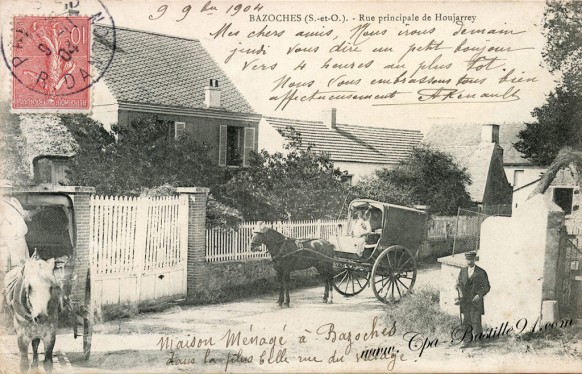 9 9bre 1904
BAZOCHES (S.-et-O.). - Rue principale de Houjarrey
Mes chers amis, Nous irons demain
jeudi vous dire un petit bonjour
vers 4 heures au plus tôt.
Nous vous embrassons tous bien
affectueusement
10
04
Maison Ménagé à Bazoches
dans la plus belle rue du village
www.Cpa-Bastille91.com